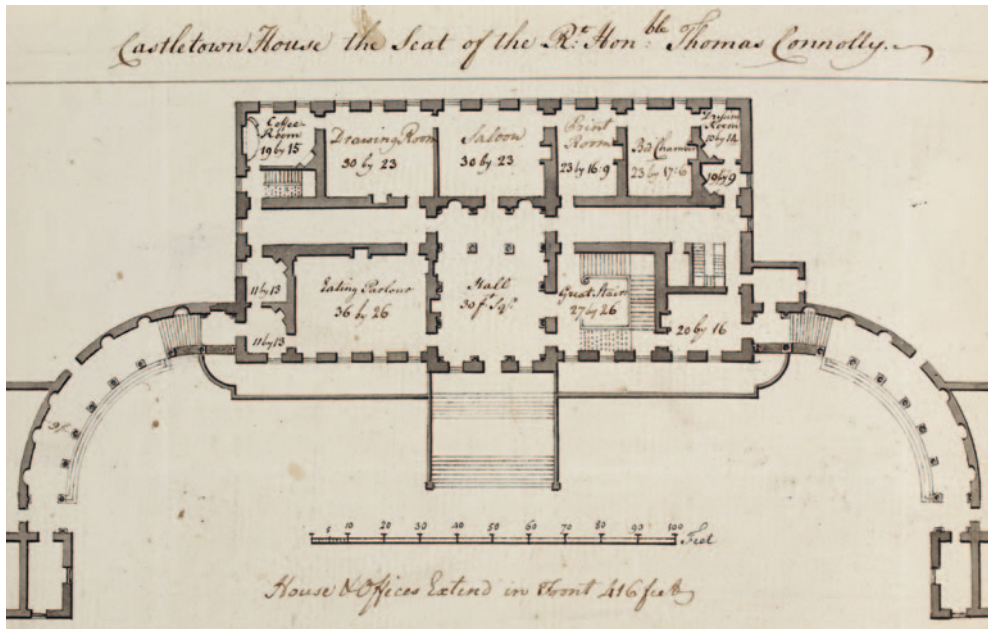 Castletown House the Seat of the Rt. Honble. Thomas Connolly.
Coffee
Room
19 by 15
Drawing Room
30 by 23
Saloon
30 by 23
Print
Room
23 by 16:9
Bed Chamber
23 by 17:6
Room
10 by 14
10 by 9
11 by 13
Eating Parlour
36 by 26
Hall
30 f. Sqr.
Great Stair
27 by 26
20 by 16
11 by 13
5 10 20 30 40 50 60 70 80 90 100 Feet
House & Offices Extend in Front 416 feet